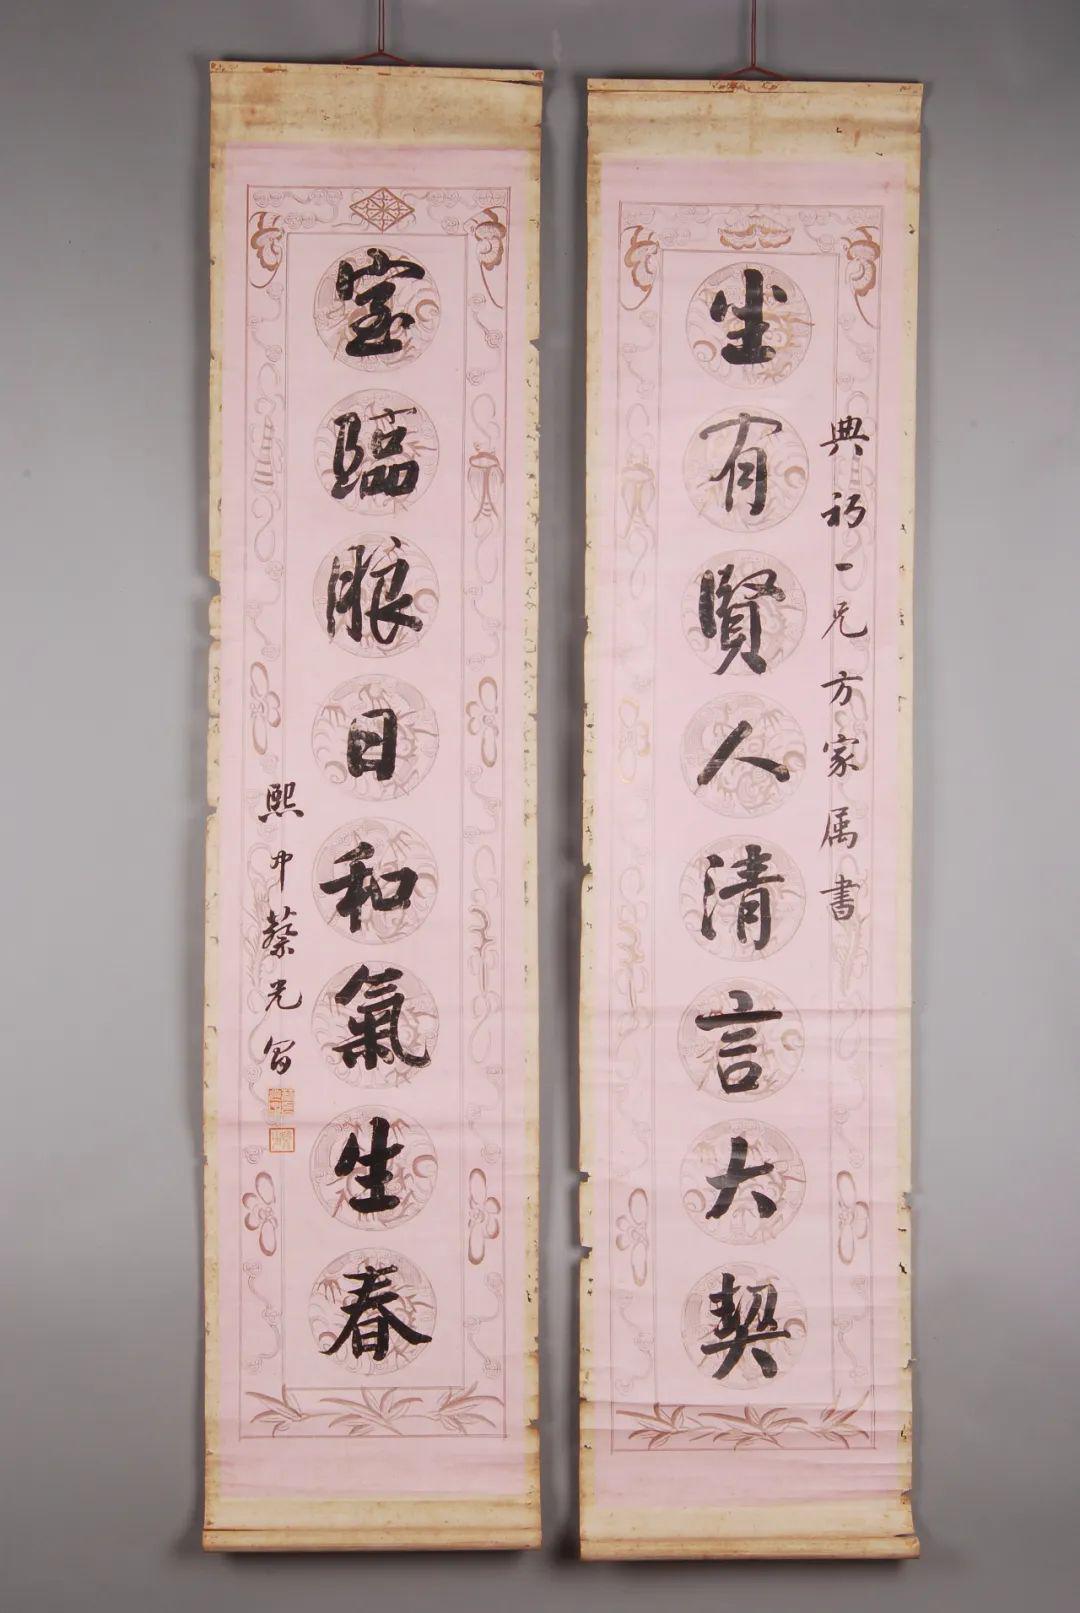 典初一兄方家属書
坐有賢人清言大契
室臨朖日和氣生春
熙中蔡光